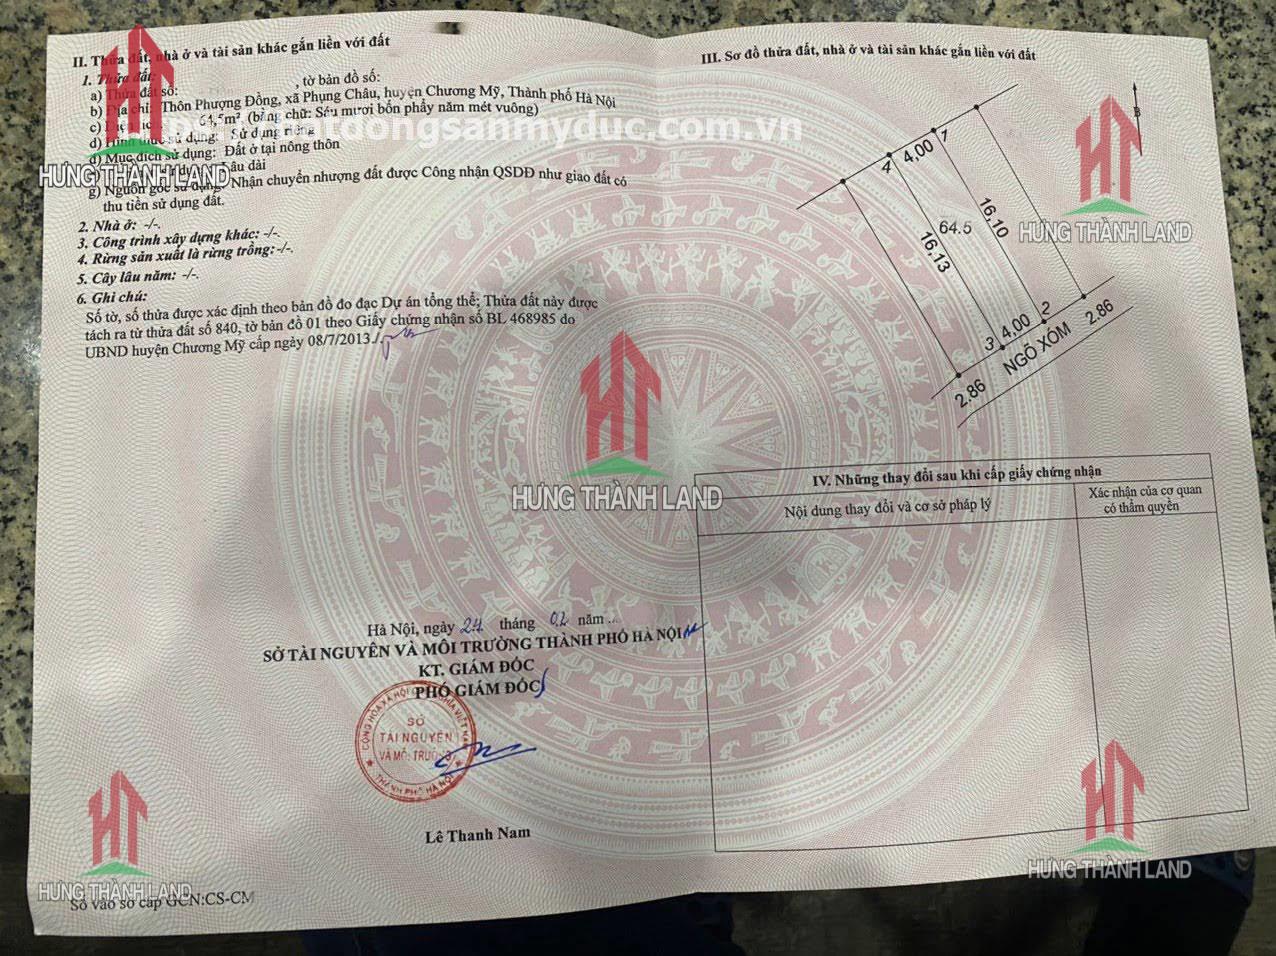 II. Thửa đất, nhà ở và tài sản khác gắn liền với đất
1. Thửa đất:
a) Thửa đất số: , tờ bản đồ số:
b) Địa chỉ: Thôn Phượng Đồng, xã Phụng Châu, huyện Chương Mỹ, Thành phố Hà Nội
c) 64,5m², (bằng chữ: Sáu mươi bốn phẩy năm mét vuông)
batdongsanmyduc.com.vn
d) Hình thức sử dụng: Sử dụng riêng
đ) Mục đích sử dụng: Đất ở tại nông thôn
Lâu dài
g) Nguồn gốc sử dụng: Nhận chuyển nhượng đất được Công nhận QSDĐ như giao đất có
thu tiền sử dụng đất.
2. Nhà ở: -/-.
3. Công trình xây dựng khác: -/-.
4. Rừng sản xuất là rừng trồng:-/-.
5. Cây lâu năm: -/-.
6. Ghi chú:
Số tờ, số thửa được xác định theo bản đồ đo đạc Dự án tổng thể; Thửa đất này được
tách ra từ thửa đất số 840, tờ bản đồ 01 theo Giấy chứng nhận số BL 468985 do
UBND huyện Chương Mỹ cấp ngày 08/7/2013./.
Hà Nội, ngày 24 tháng 02 năm ...
SỞ TÀI NGUYÊN VÀ MÔI TRƯỜNG THÀNH PHỐ HÀ NỘI
KT. GIÁM ĐỐC
PHÓ GIÁM ĐỐC
SỞ
TÀI NGUYÊN
VÀ MÔI TRƯỜNG
THÀNH PHỐ HÀ NỘI
Lê Thanh Nam
Số vào sổ cấp GCN:CS-CM
III. Sơ đồ thửa đất, nhà ở và tài sản khác gắn liền với đất
B
1
4,00
4
16,10
64.5
16,13
2
4,00
3
2.86
NGÕ XÓM
2.86
IV. Những thay đổi sau khi cấp giấy chứng nhận
Nội dung thay đổi và cơ sở pháp lý
Xác nhận của cơ quan
có thẩm quyền
HƯNG THÀNH LAND
HƯNG THÀNH LAND
HƯNG THÀNH LAND
HƯNG THÀNH LAND
HƯNG THÀNH LAND